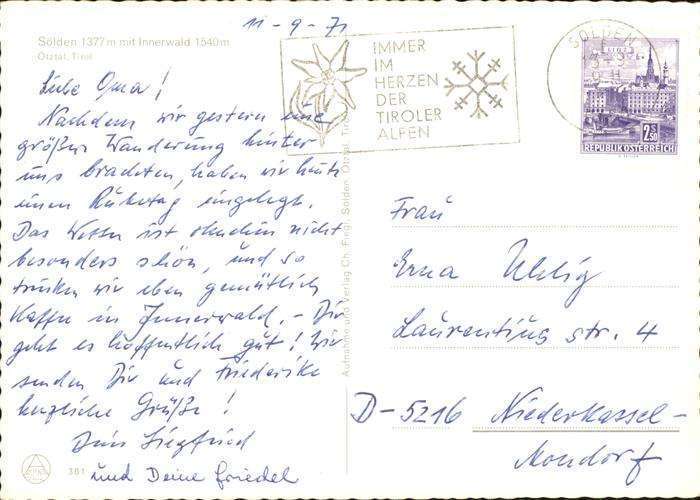 11-9-71
Sölden 1377 m mit Innerwald 1540 m
Ötztal, Tirol
Liebe Oma!
Nachdem wir gestern eine
größere Wanderung hinter
uns brachten, haben wir heute
einen Ruhetag eingelegt.
Das Wetter ist ohnehin nicht
besonders schön, und so
trinken wir eben gemütlich
Kaffee in Innerwald. - Dir
geht es hoffentlich gut! Wir
senden Dir und Friederike
herzliche Grüße!
Dein Siegfried
und Deine Friedel
381
IMMER
IM
HERZEN
DER
TIROLER
ALPEN
SÖLDEN
LINZ
2 S 50
REPUBLIK ÖSTERREICH
Aufnahme und Verlag Ch. Fiegl, Sölden, Ötztal, Tirol
Frau
Erna Uhlig
Laurentius str. 4
D-5216 Niederkassel-
Mondorf